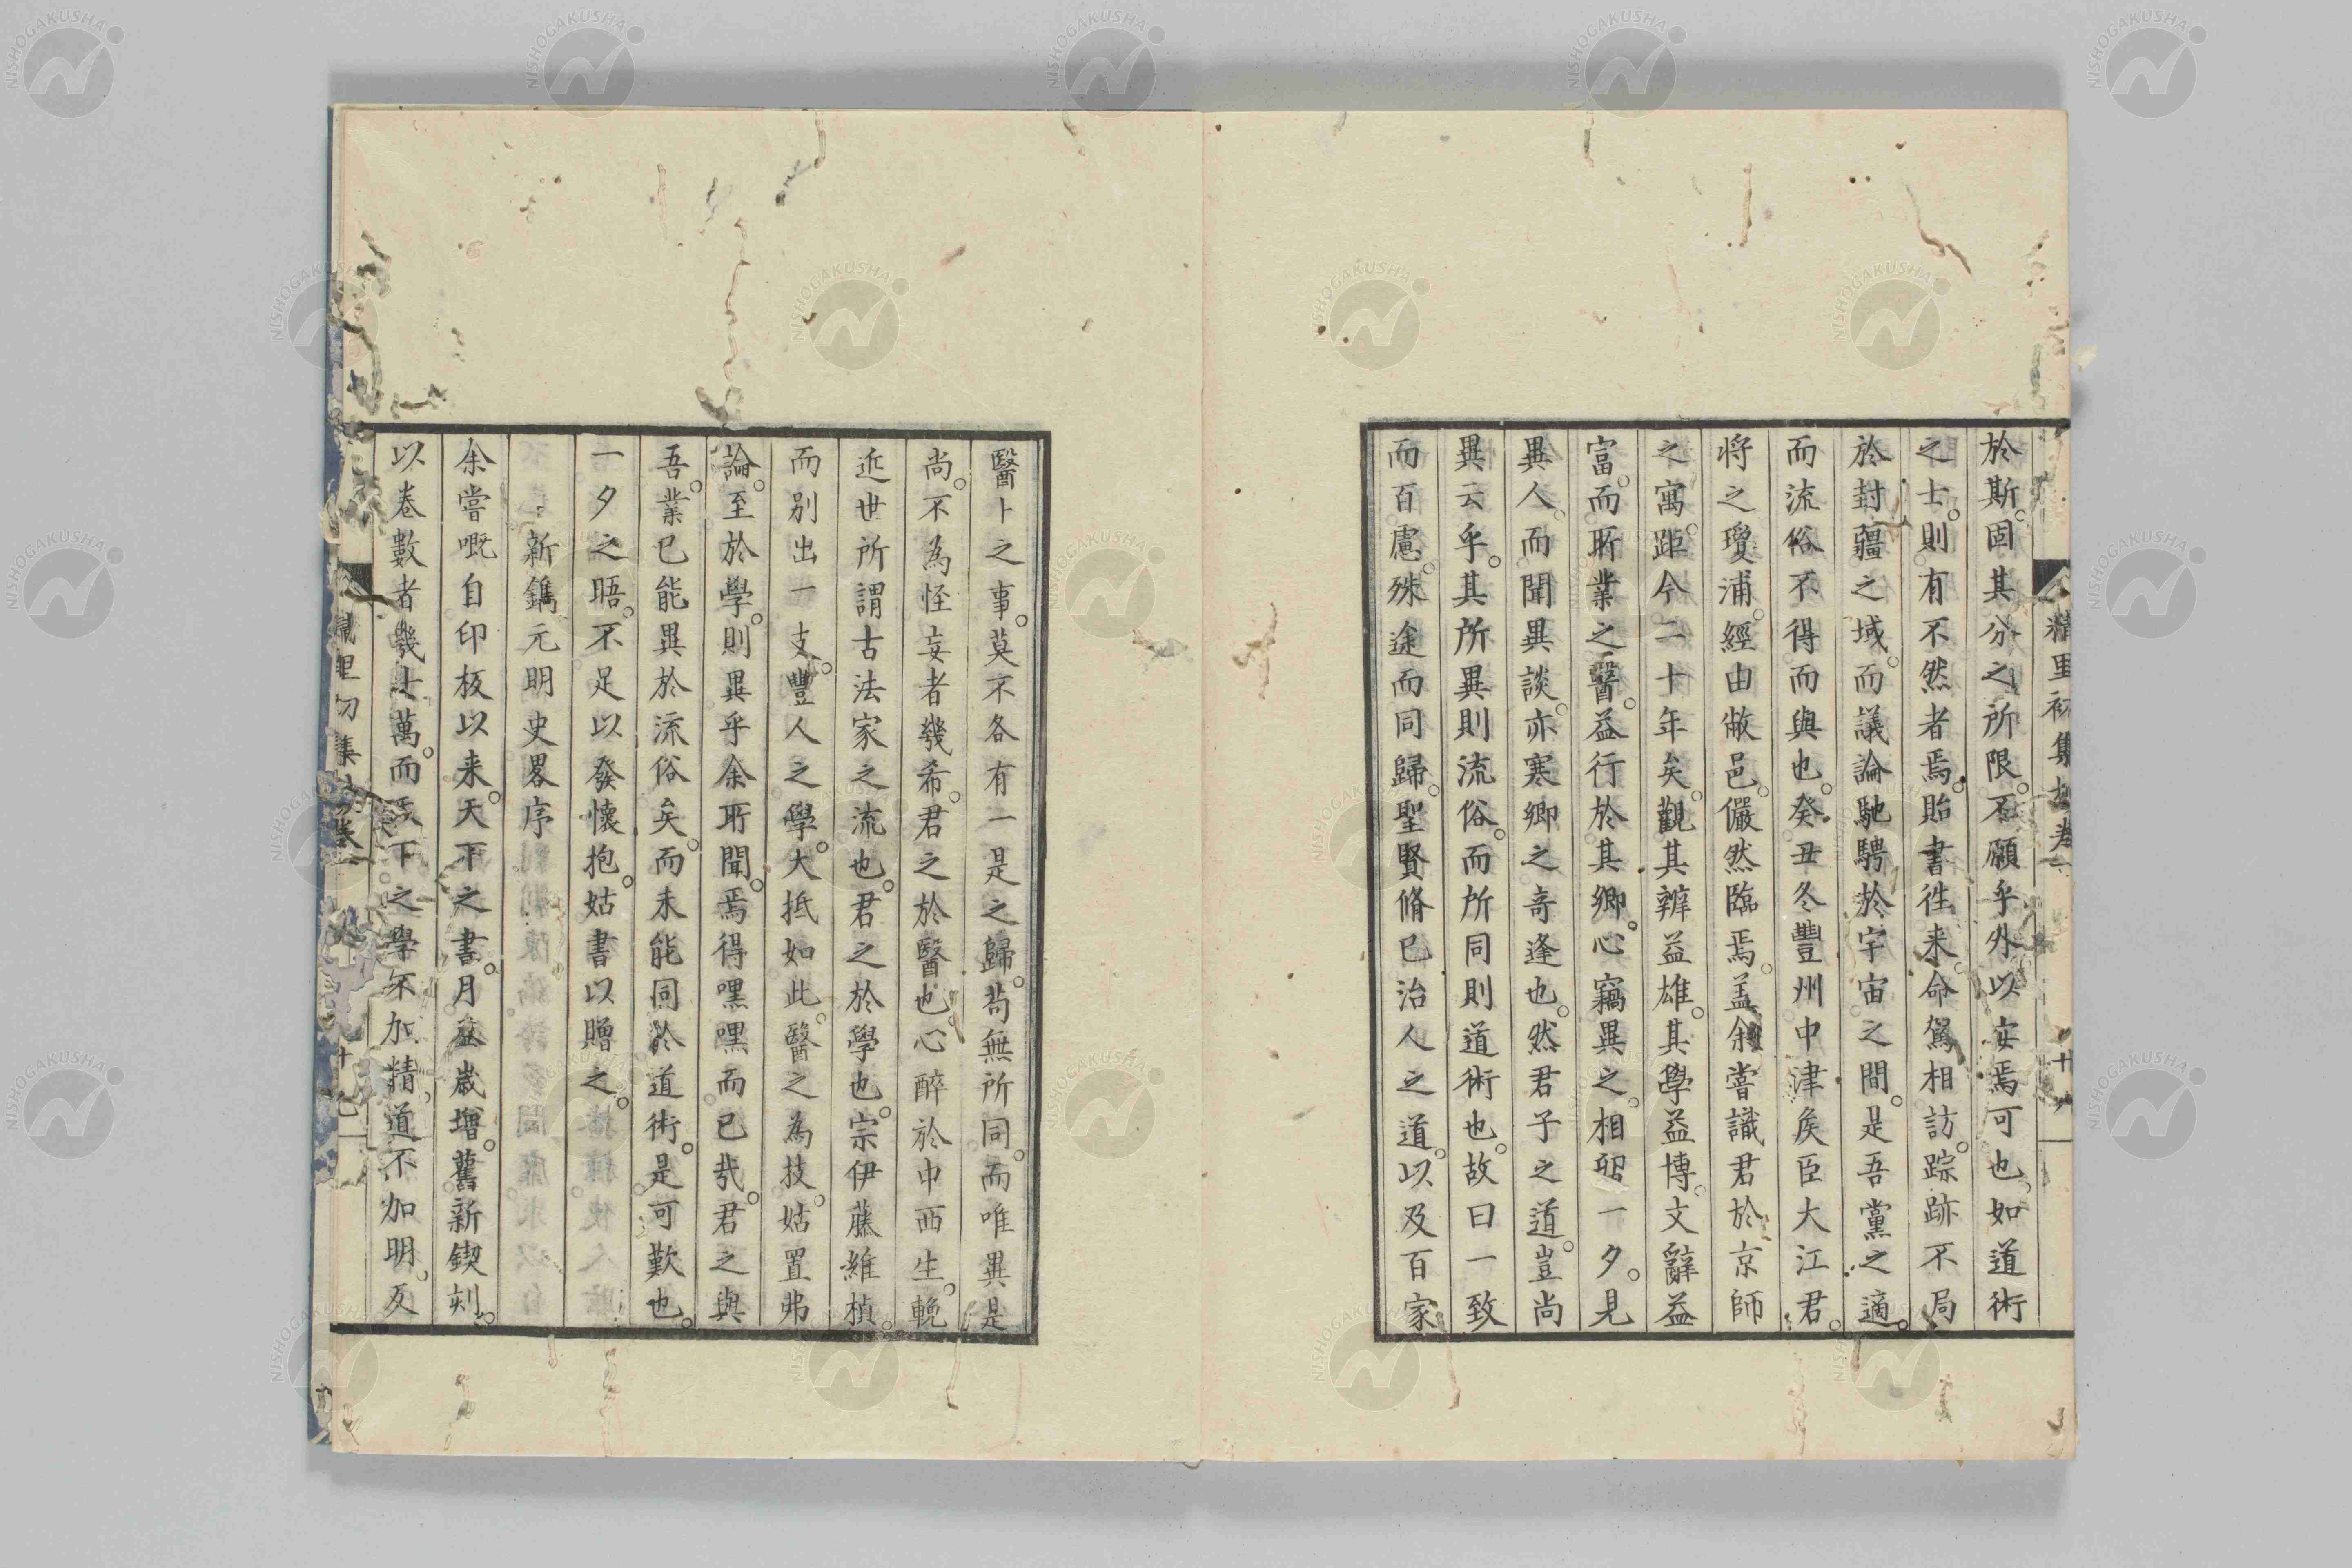 於斯。固其分之所限。不願乎外以安焉可也。如道術
之士。則有不然者焉。貽書徃来。命駕相訪。踪跡不局
於封疆之域。而議論馳騁於宇宙之間。是吾黨之適。
而流俗不得而與也。癸丑冬豐州中津矦臣大江君。
將之瓊浦。經由敝邑。儼然臨焉。盖余嘗識君於京師
之寓。距今二十年矣。觀其辨益雄。其學益博。文辭益
富。而所業之醫。益行於其鄉。心竊異之。相留一夕。見
異人。而聞異談。亦寒鄉之奇逢也。然君子之道。豈尚
異云乎。其所異則流俗。而所同則道術也。故曰一致
而百慮。殊途而同歸。聖賢脩己治人之道。以及百家
醫卜之事。莫不各有一是之歸。苟無所同。而唯異是
尚。不為怪妄者幾希。君之於醫也。心醉於中西生。輓
近世所謂古法家之流也。君之於學也。宗伊藤維楨。
而別出一支。豐人之學。大抵如此。醫之為技。姑置弗
論。至於學。則異乎余所聞。焉得嘿嘿而已哉。君之與
吾。業已能異於流俗矣。而未能同於道術。是可歎也。
一夕之晤。不足以發懷抱。姑書以贈之。
新鐫元明史畧序
余嘗嘅自印板以来。天下之書。月益歲增。舊新鍥刻。
以卷數者幾十萬。而天下之學不加精。道不加明。反
精里初集抄卷一
十八